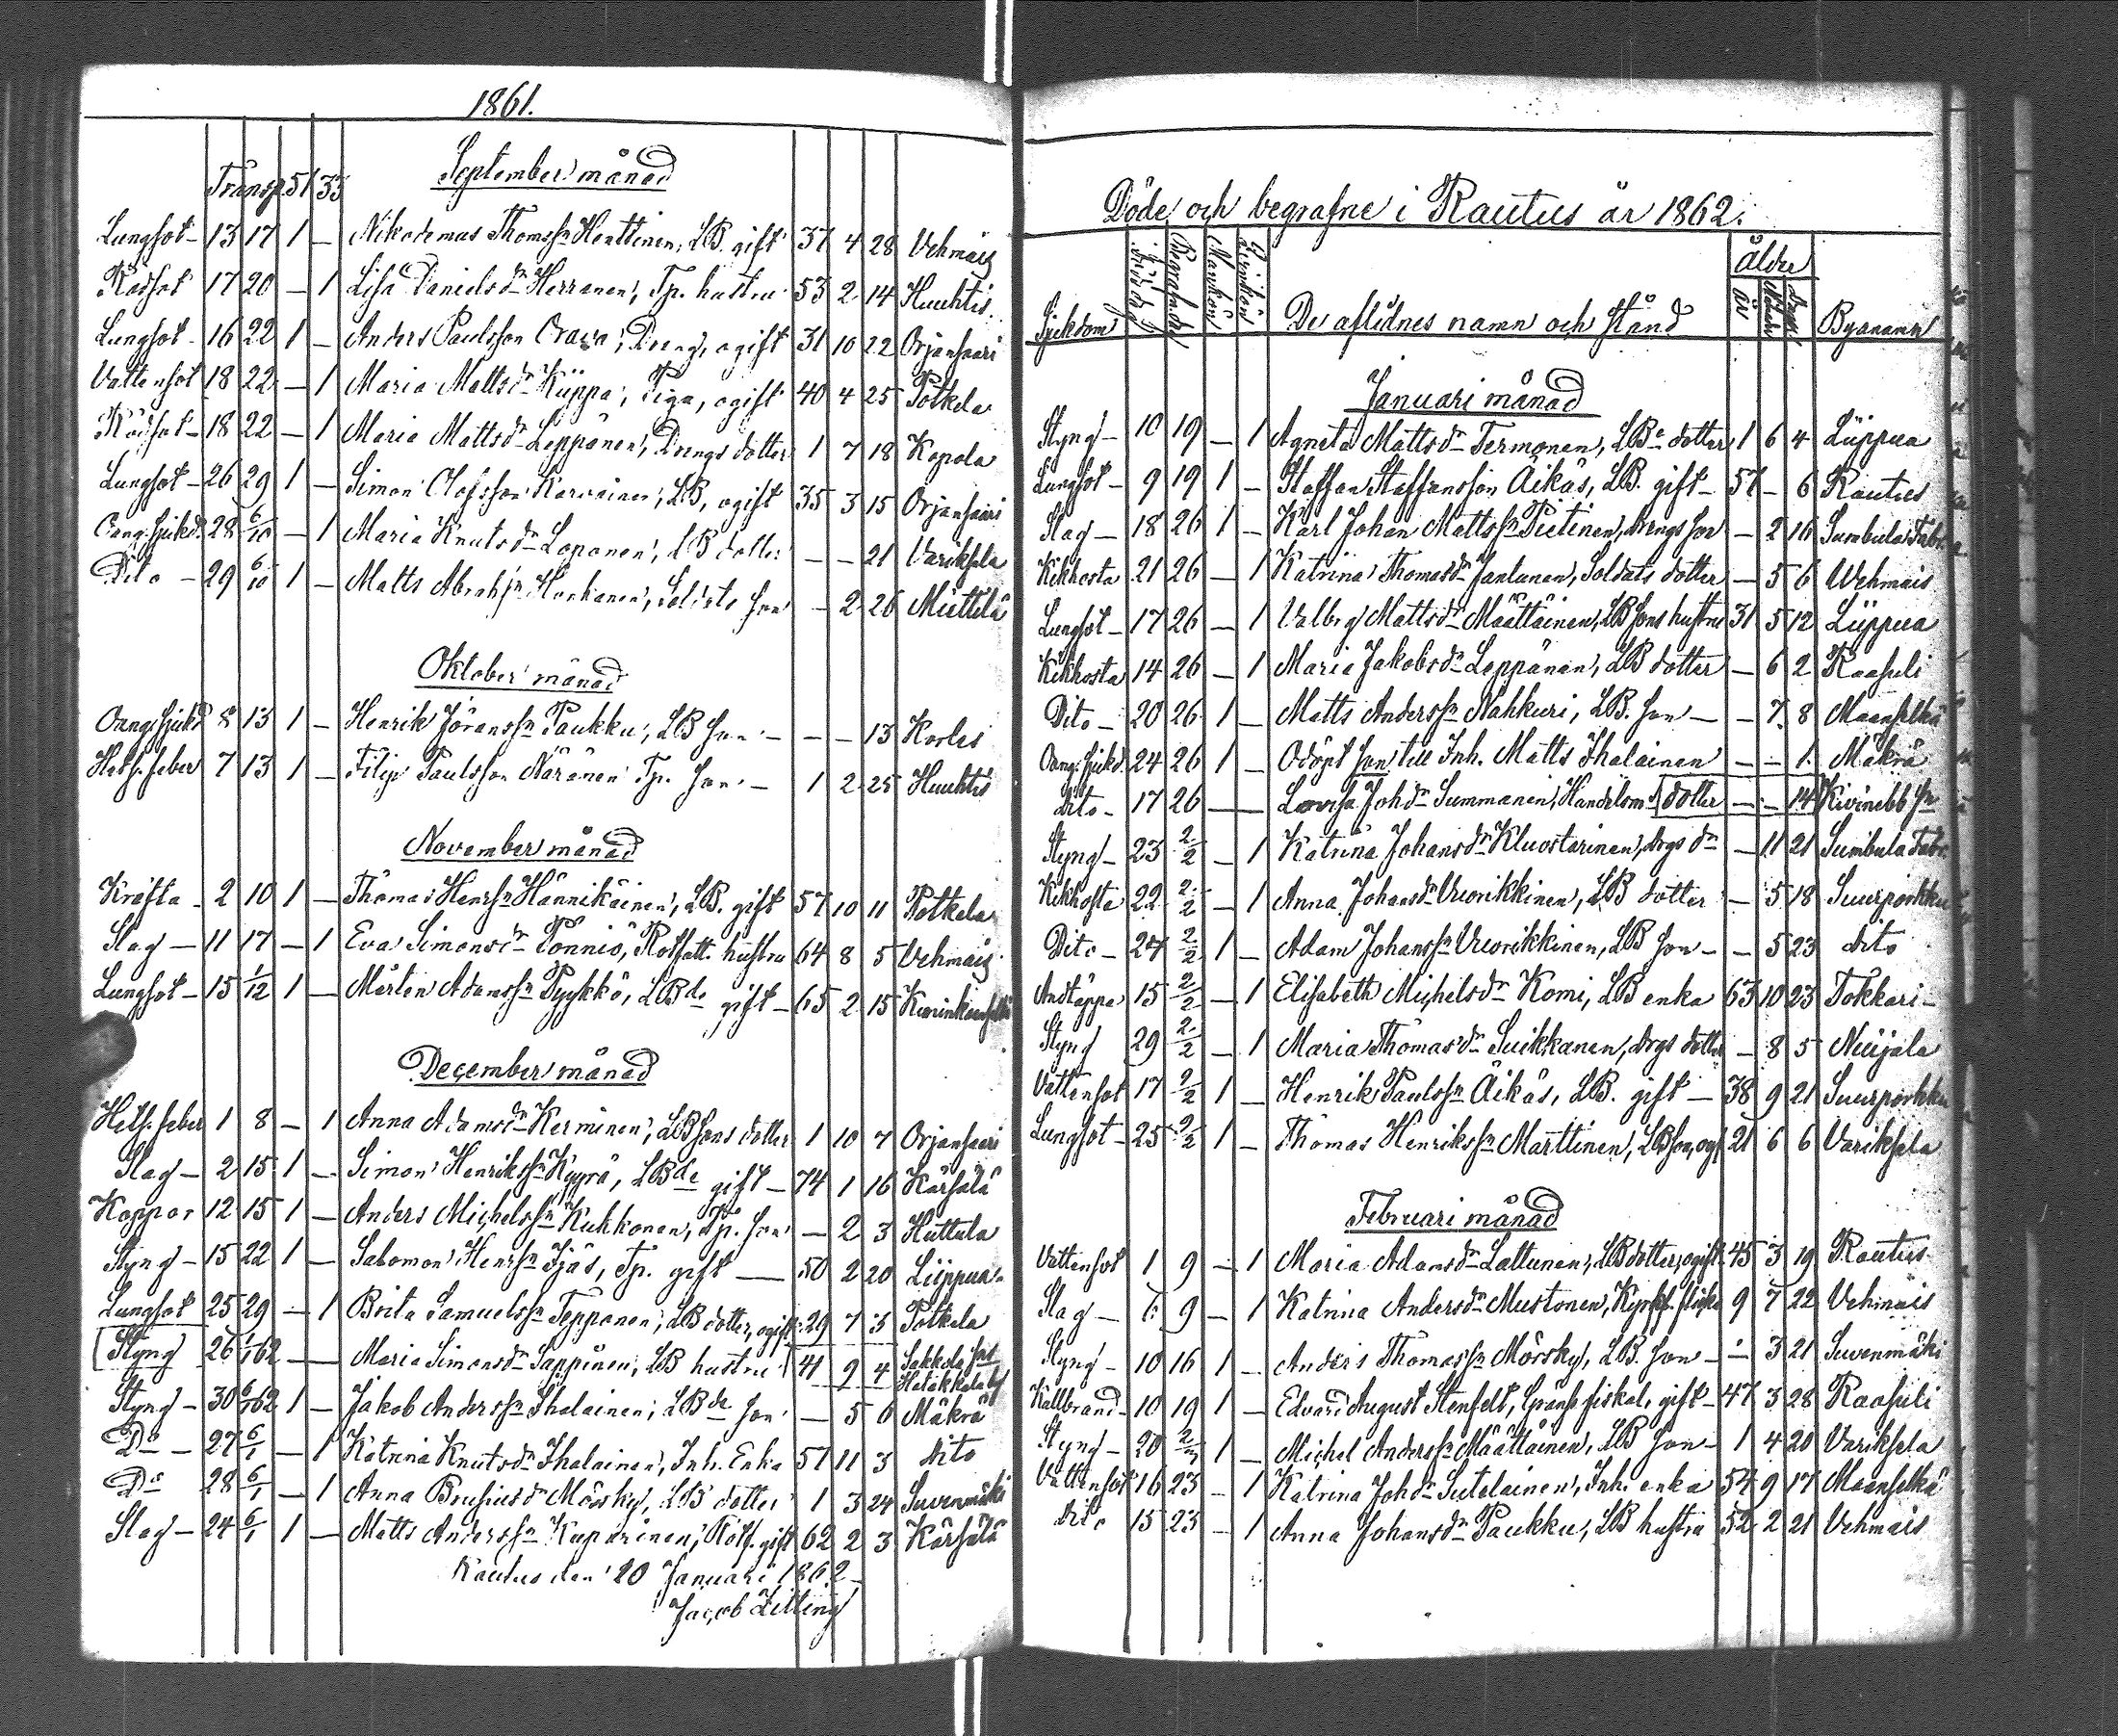 1861.
September månad
Transp. 51 33
Lungsot - 13 17 1 - Nikodemus Thomss: Henttinen, LB. gift 37 4 28 Vehmais
Rödsot 17 20 - 1 Lisa Danielsdr Herranen, Tp. hustru 53 2 14 Huuhtis
Lungsot - 16 22 1 - Anders Paulsson Orava, Dreng, ogift 31 10 22 Orjansaari
Vattensot 18 22 - 1 Maria Mattsdr Kiippa, Piga, ogift 40 4 25 Potkela
Rödsot - 18 22 - 1 Maria Mattsdr Leppänen, Drengs dotter 1 7 18 Kopola
Lungsot - 26 29 1 - Simon Olofsson Karvainen, LB, ogift 35 3 15 Orjansaari
Oang. sjukd. 28 6/10 - 1 Maria Knutsdr Loponen, LB dotter - - 21 Variksela
Dito - 29 6/10 1 - Matts Abrahsn Honkanen, Soldats son - 2 26 Miettilä
Oktober månad
Oang. sjukd 8 13 1 - Henrik Jöranssn Paukku, LB son - - - 13 Korles
Hets. feber 7 13 1 - Filip Paulsson Näränen Tp. son - 1 2 25 Huuhtis
November månad
Kräfta - 2 10 1 - Thomas Henrsn Hännikäinen, LB. gift 57 10 11 Potkela
Slag - 11 17 - 1 Eva Simonsdr Ponniö, Rotfatt. hustru 64 8 5 Vehmais
Lungsot - 15 1/12 1 - Mårten Adamssn Pyykkö, LBde gift - 65 2 15
December månad
Hets. feber 1 8 - 1 Anna Adamsdr Kerminen, LB sons dotter 1 10 7 Orjansaari
Slag - 2 15 1 - Simon Henrikssn Kyyrä, LBde gift - 74 1 16 Kärsälä
Koppor 12 15 1 - Anders Michelssn Kukkonen, Tp. son - 2 3 Huttula
Styng - 15 22 1 - Salomon Henrsn Ijäs, Tp. gift - 50 2 20 Liippua
Lungsot 25 29 - 1 Brita Samuelssn Tepponen, LB dotter, ogift 29 7 3 Potkela
Styng 26 1/1 62 - Maria Simonsdr Säppinen, LB hustru 41 9 4 Sakkola
Styng - 30 6/1 62 1 - Jakob Anderssn Ihalainen, LBde son - 5 6 Mäkrä
Do - 27 6/1 - 1 Katrina Knutsdr Ihalainen, Inh. Enka 57 11 3 dito
Do 28 6/1 - 1 Anna Brusiusdr Mörsky, LB dotter 1 3 24 Suvenmäki
Slag - 24 6/1 1 - Matts Anderssn Kuparinen, Rotf. gift 62 2 3 Kärsälä
Rautus den 20 Januari 1862
Jacob Zitting
Döde och begrafne i Rautus år 1862.
Sjukdom Död dag Begrafn. dag Mankön Qvinkön De aflidnes namn och stånd Ålder År Månader Dagar Byanamn
Januari månad
Styng - 10 19 - 1 Agneta Mattsdr Termonen, LBs dotter 1 6 4 Liippua
Lungsot - 9 19 1 - Staffan Staffansson Äikäs, LB. gift - 57 - 6 Rautus
Slag - 18 26 1 - Karl Johan Mattssn Pietinen, drengs son - 2 16 Sumbula Fabr.
Kikhosta 21 26 - 1 Katrina Thomasdr Jantunen, Soldats dotter - 5 6 Wehmais
Lungsot - 17 26 - 1 Valborg Mattsdr Määttäinen, LB sons hustru 31 5 12 Liippua
Kikhosta 14 26 - 1 Maria Jakobsdr Leppänen, LB dotter - 6 2 Raasuli
Dito - 20 26 1 - Matts Anderssn Nahkuri, LB. son - - 7 8 Maanselkä
Oang. sjukd. 24 26 1 - Odöpt son till Inh. Matts Ihalainen - - 1 Mäkrä
dito - 17 26 - - Lovisa Johdr Summanen, Handelsm. dotter - - 14 Kivinebb sn
Styng - 23 2/2 - 1 Katrina Johansdr Kluostarinen, drgs dr - 11 21 Sumbula Fabr.
Kikhosta 22 2/2 - 1 Anna Johansdr Vuorikkinen, LB dotter - 5 18 Suurporkku
Dito - 27 2/2 1 - Adam Johanssn Vuorikkinen, LB son - - 5 23 dito
Andtäppa 15 2/2 - 1 Elisabeth Michelsdr Komi, LB enka 63 10 23 Tokkari -
Styng 29 2/2 - 1 Maria Thomasdr Suikkanen, drgs dotter - 8 5 Nuijala
Vattensot 17 2/2 1 - Henrik Paulssn Äikäs, LB. gift - 38 9 21 Suurporkku
Lungsot - 25 2/2 1 - Thomas Henrikssn Marttinen, LB son, ogf 21 6 6 Variksela
Februari månad
Vattensot 1 9 - 1 Maria Adamsdr Lattunen, LB dotter, ogift 45 3 19 Rautus
Slag - 9 - 1 Katrina Andersdr Mustonen, flicka 9 7 22 Vehmais
Styng - 10 16 1 - Anders Thomassn Mörsky, LB. son - - 3 21 Suvenmäki
Kallbrand - 10 19 1 - Edvard August Stenfelt, Gränsfiskal, gift - 47 3 28 Raasuli
Styng - 20 2/3 1 - Michel Anderssn Määttäinen, LB son - 1 4 20 Variksela
Vattensot 16 23 - 1 Katrina Johdr Sutelainen, Inh. enka 54 9 17 Maanselkä
dito 15 23 - 1 Anna Johansdr Paukku, LB hustru 52 2 21 Vehmais